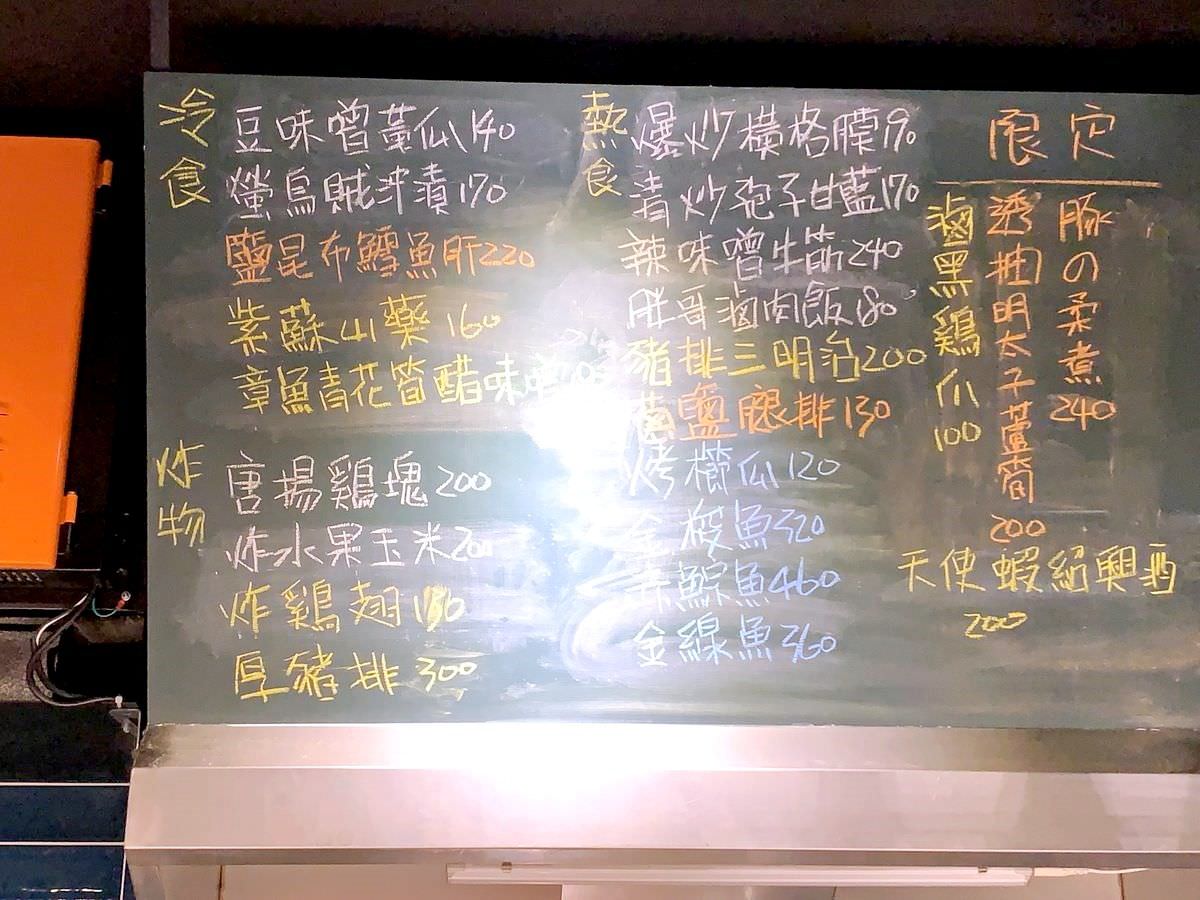 冷食
豆味噌黃瓜 140
螢烏賊沖漬 170
鹽昆布鱈魚肝 220
紫蘇山藥 160
章魚青花筍醋味噌
炸物
唐揚鷄塊 200
炸水果玉米 200
炸鷄翅
厚豬排 300
熱食
爆炒橫格膜 190
清炒孢子甘藍 170
辣味噌牛筋 240
胖哥滷肉飯 80
豬排三明治 200
鹽腿排 130
烤櫛瓜 120
金梭魚 320
赤鯮魚 460
金線魚 360
限定
豚の柔煮 240
透抽明太子蘆筍 200
滷黑鷄爪 100
天使蝦紹興酒
200